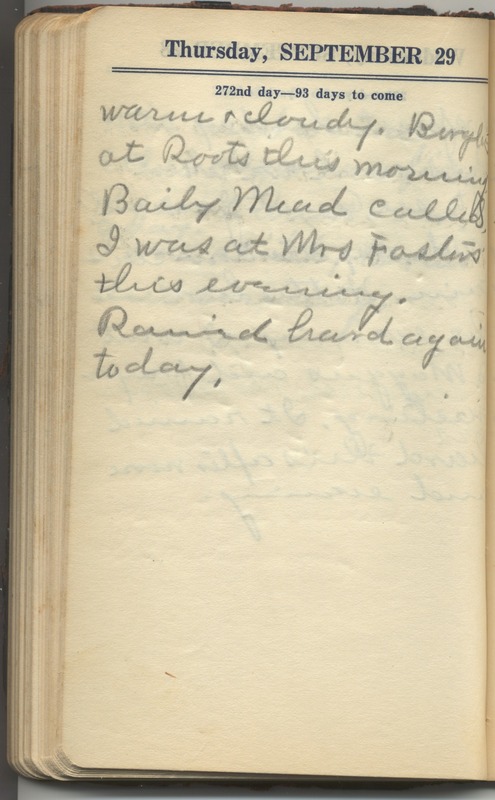 Thursday, SEPTEMBER 29
272nd day—93 days to come
warm & cloudy.
at Roots this morning
Baily Mead called,
I was at Mrs Fosters
this evening.
Rained hard again
today.